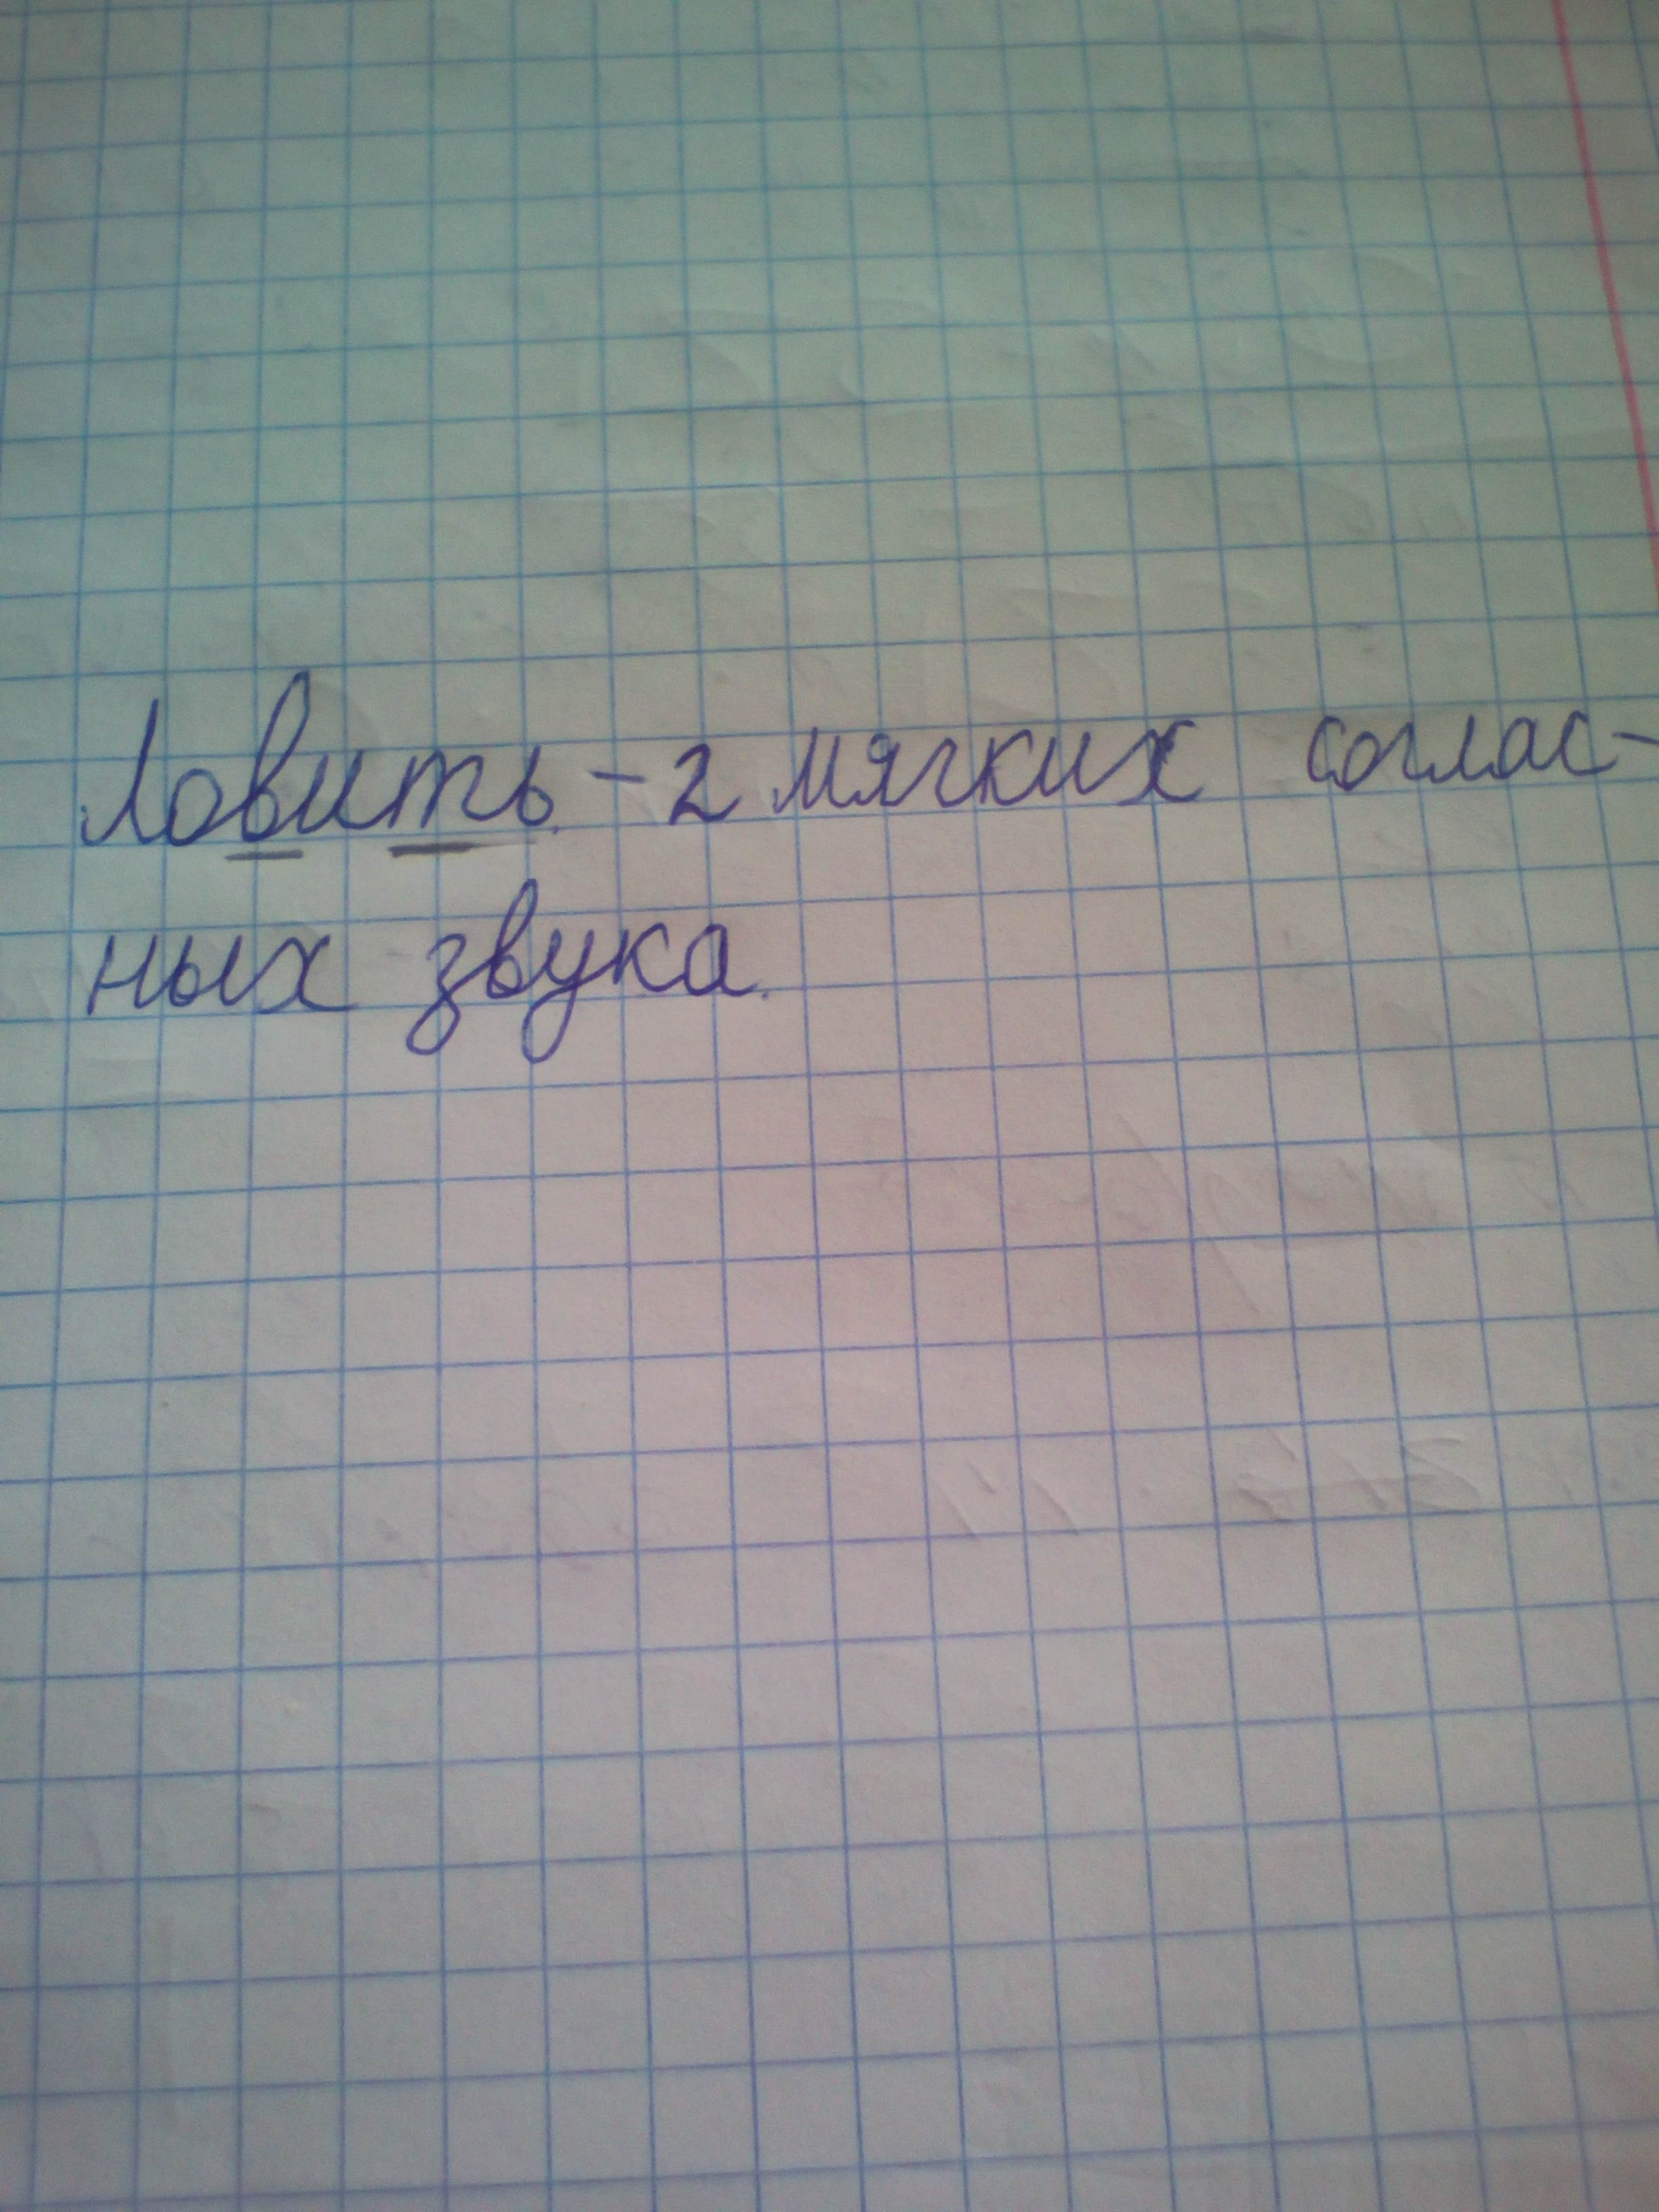 Ловить - 2 мягких соглас-
ных звука.